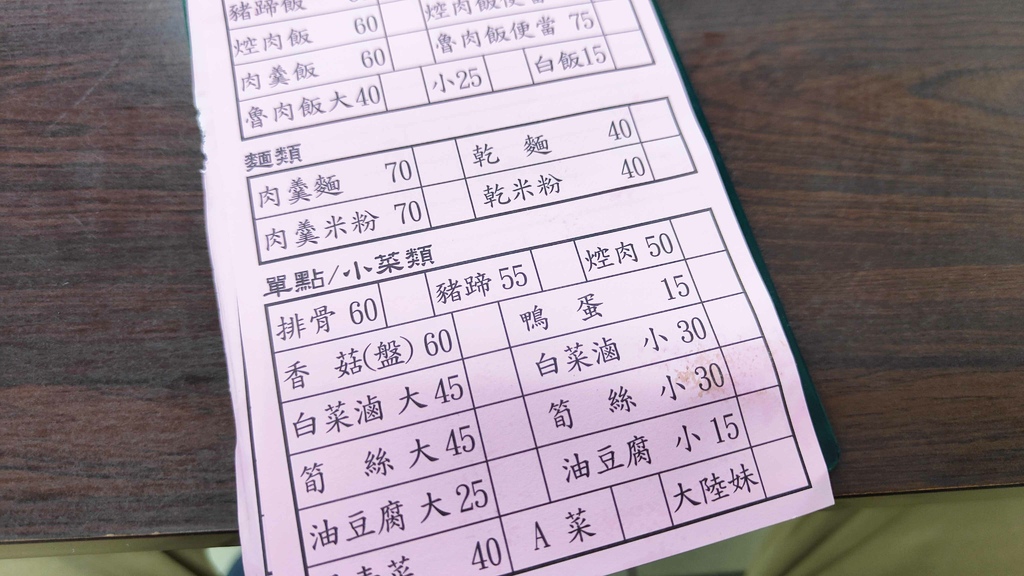 豬蹄飯
焢肉飯便當
焢肉飯 60
魯肉飯便當 75
肉羹飯 60
魯肉飯大40 小25 白飯15
麵類
肉羹麵 70 乾 麵 40
肉羹米粉 70 乾米粉 40
單點/小菜類
排骨 60 豬蹄 55 焢肉 50
香 菇(盤) 60 鴨 蛋 15
白菜滷 大 45 白菜滷 小 30
筍 絲 大 45 筍 絲 小 30
油豆腐 大 25 油豆腐 小 15
菜 40 A 菜 大陸妹